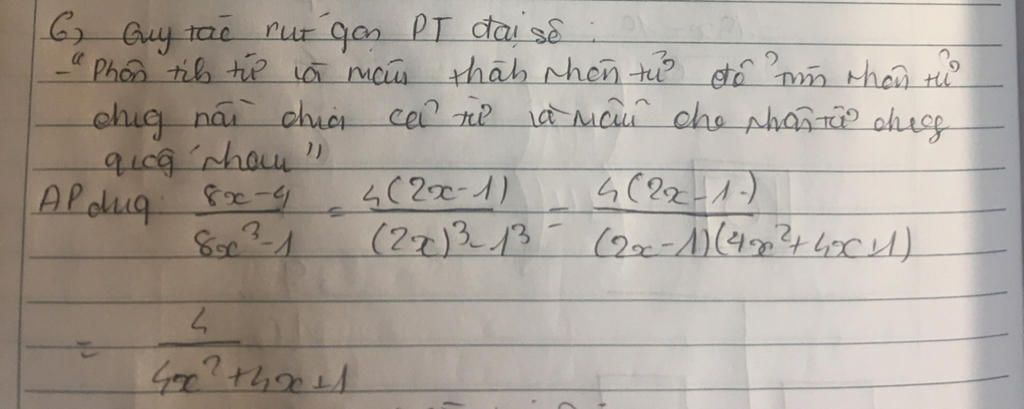 6) Quy tắc rút gọn PT đại số :
- "Phân tích tử và mẫu thành nhân tử để tìm nhân tử
chung rồi chia cả tử và mẫu cho nhân tử chung
nhau"
AP dụng \frac{8x-4}{8x^3-1} = \frac{4(2x-1)}{(2x)^3-1^3} = \frac{4(2x-1)}{(2x-1)(4x^2+4x+1)}
= \frac{4}{4x^2+4x+1}